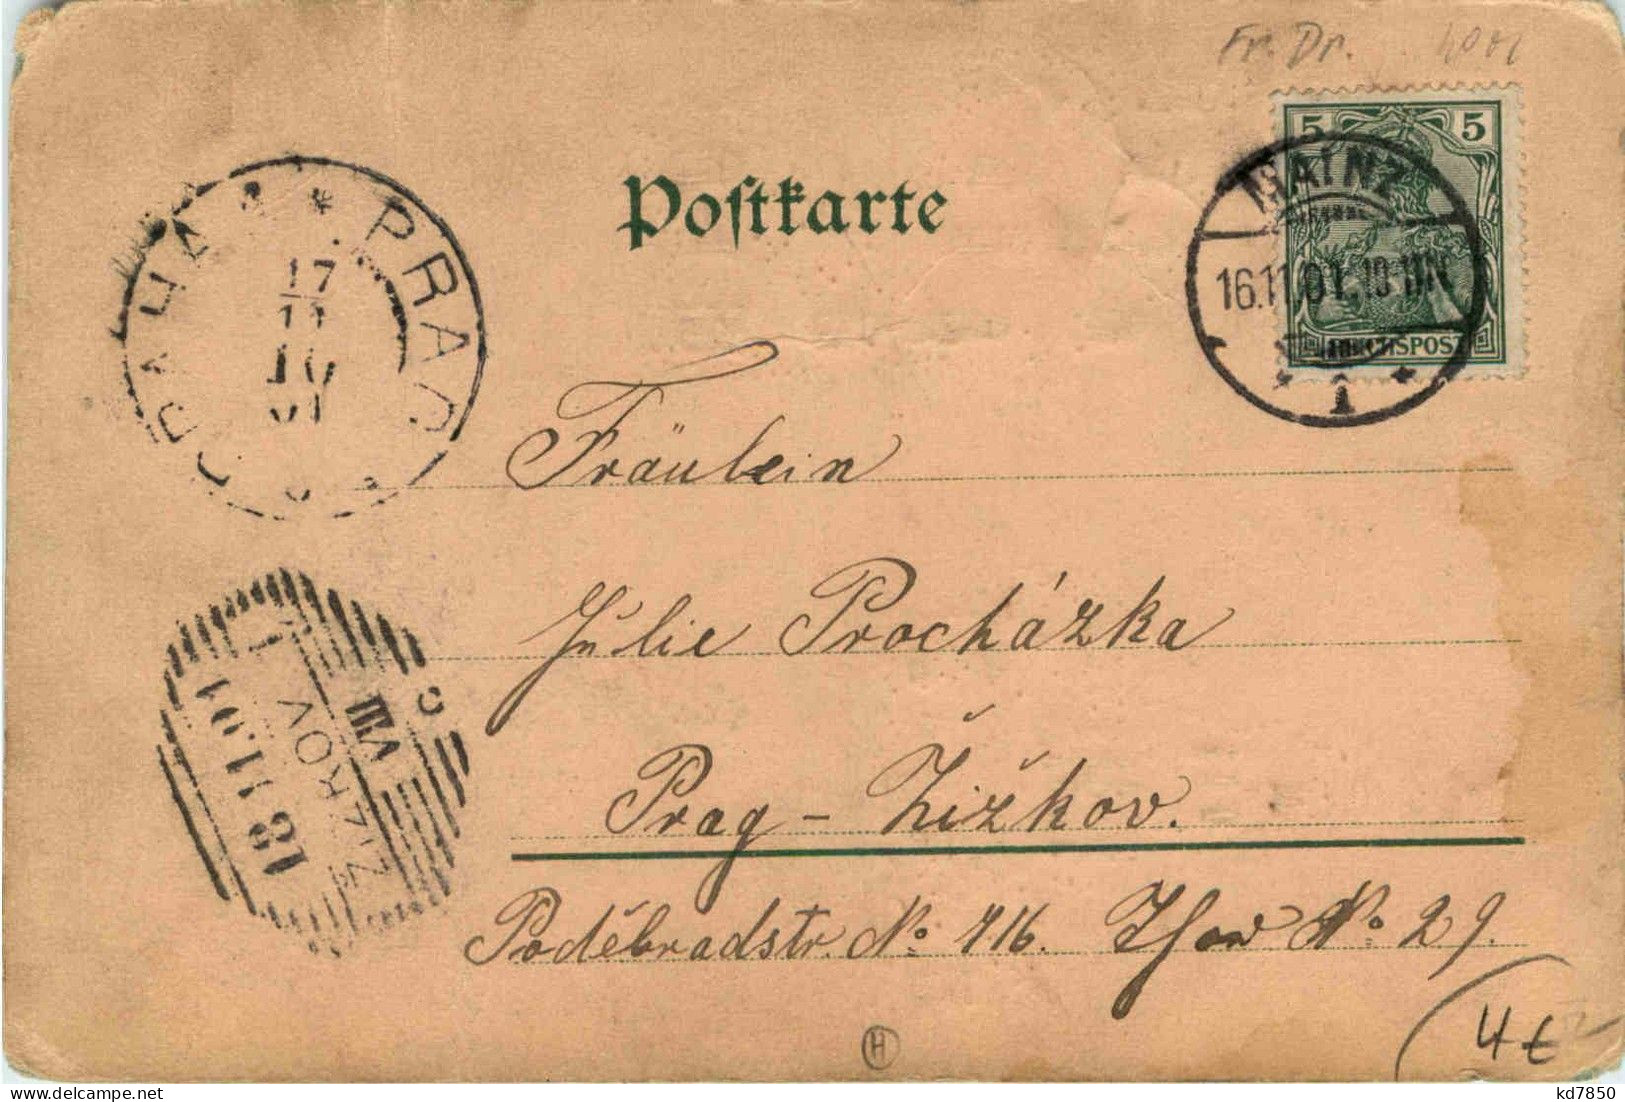 Fr. Dr.
5 5
MAINZ
Postkarte
* PRAG
PRAHA
17
11
01
16.11.01. 10-11N
REICHSPOST
* 1 *
Fräulein
Julie Procházka
ŽIŽKOV
VIII
18 11.01
Prag - Žižkov.
Poděbradstr. No 716. Thor No 29.
H
4€
kd7850